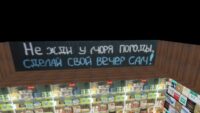 Не жди у моря погоды,
сделай свой вечер сам!